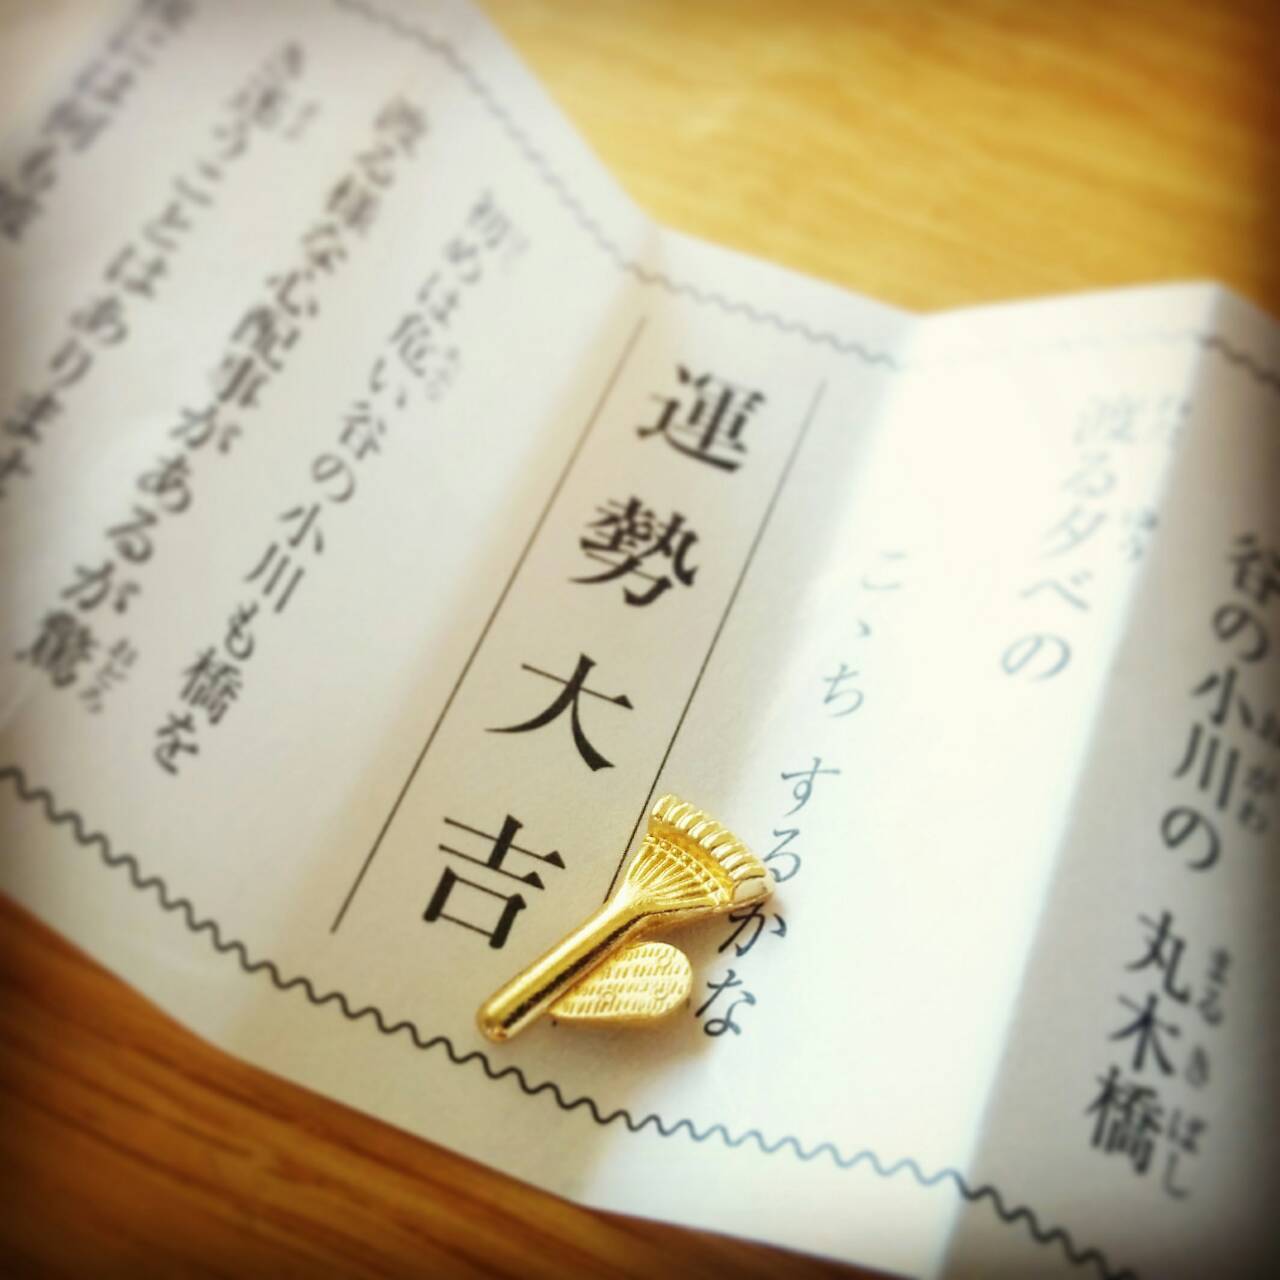 谷の小川の 丸木橋
渡る夕べの
こゝち するかな
運勢大吉
初めは危い谷の小川も橋を
渡る様な心配事があるが驚
き迷うことはあります